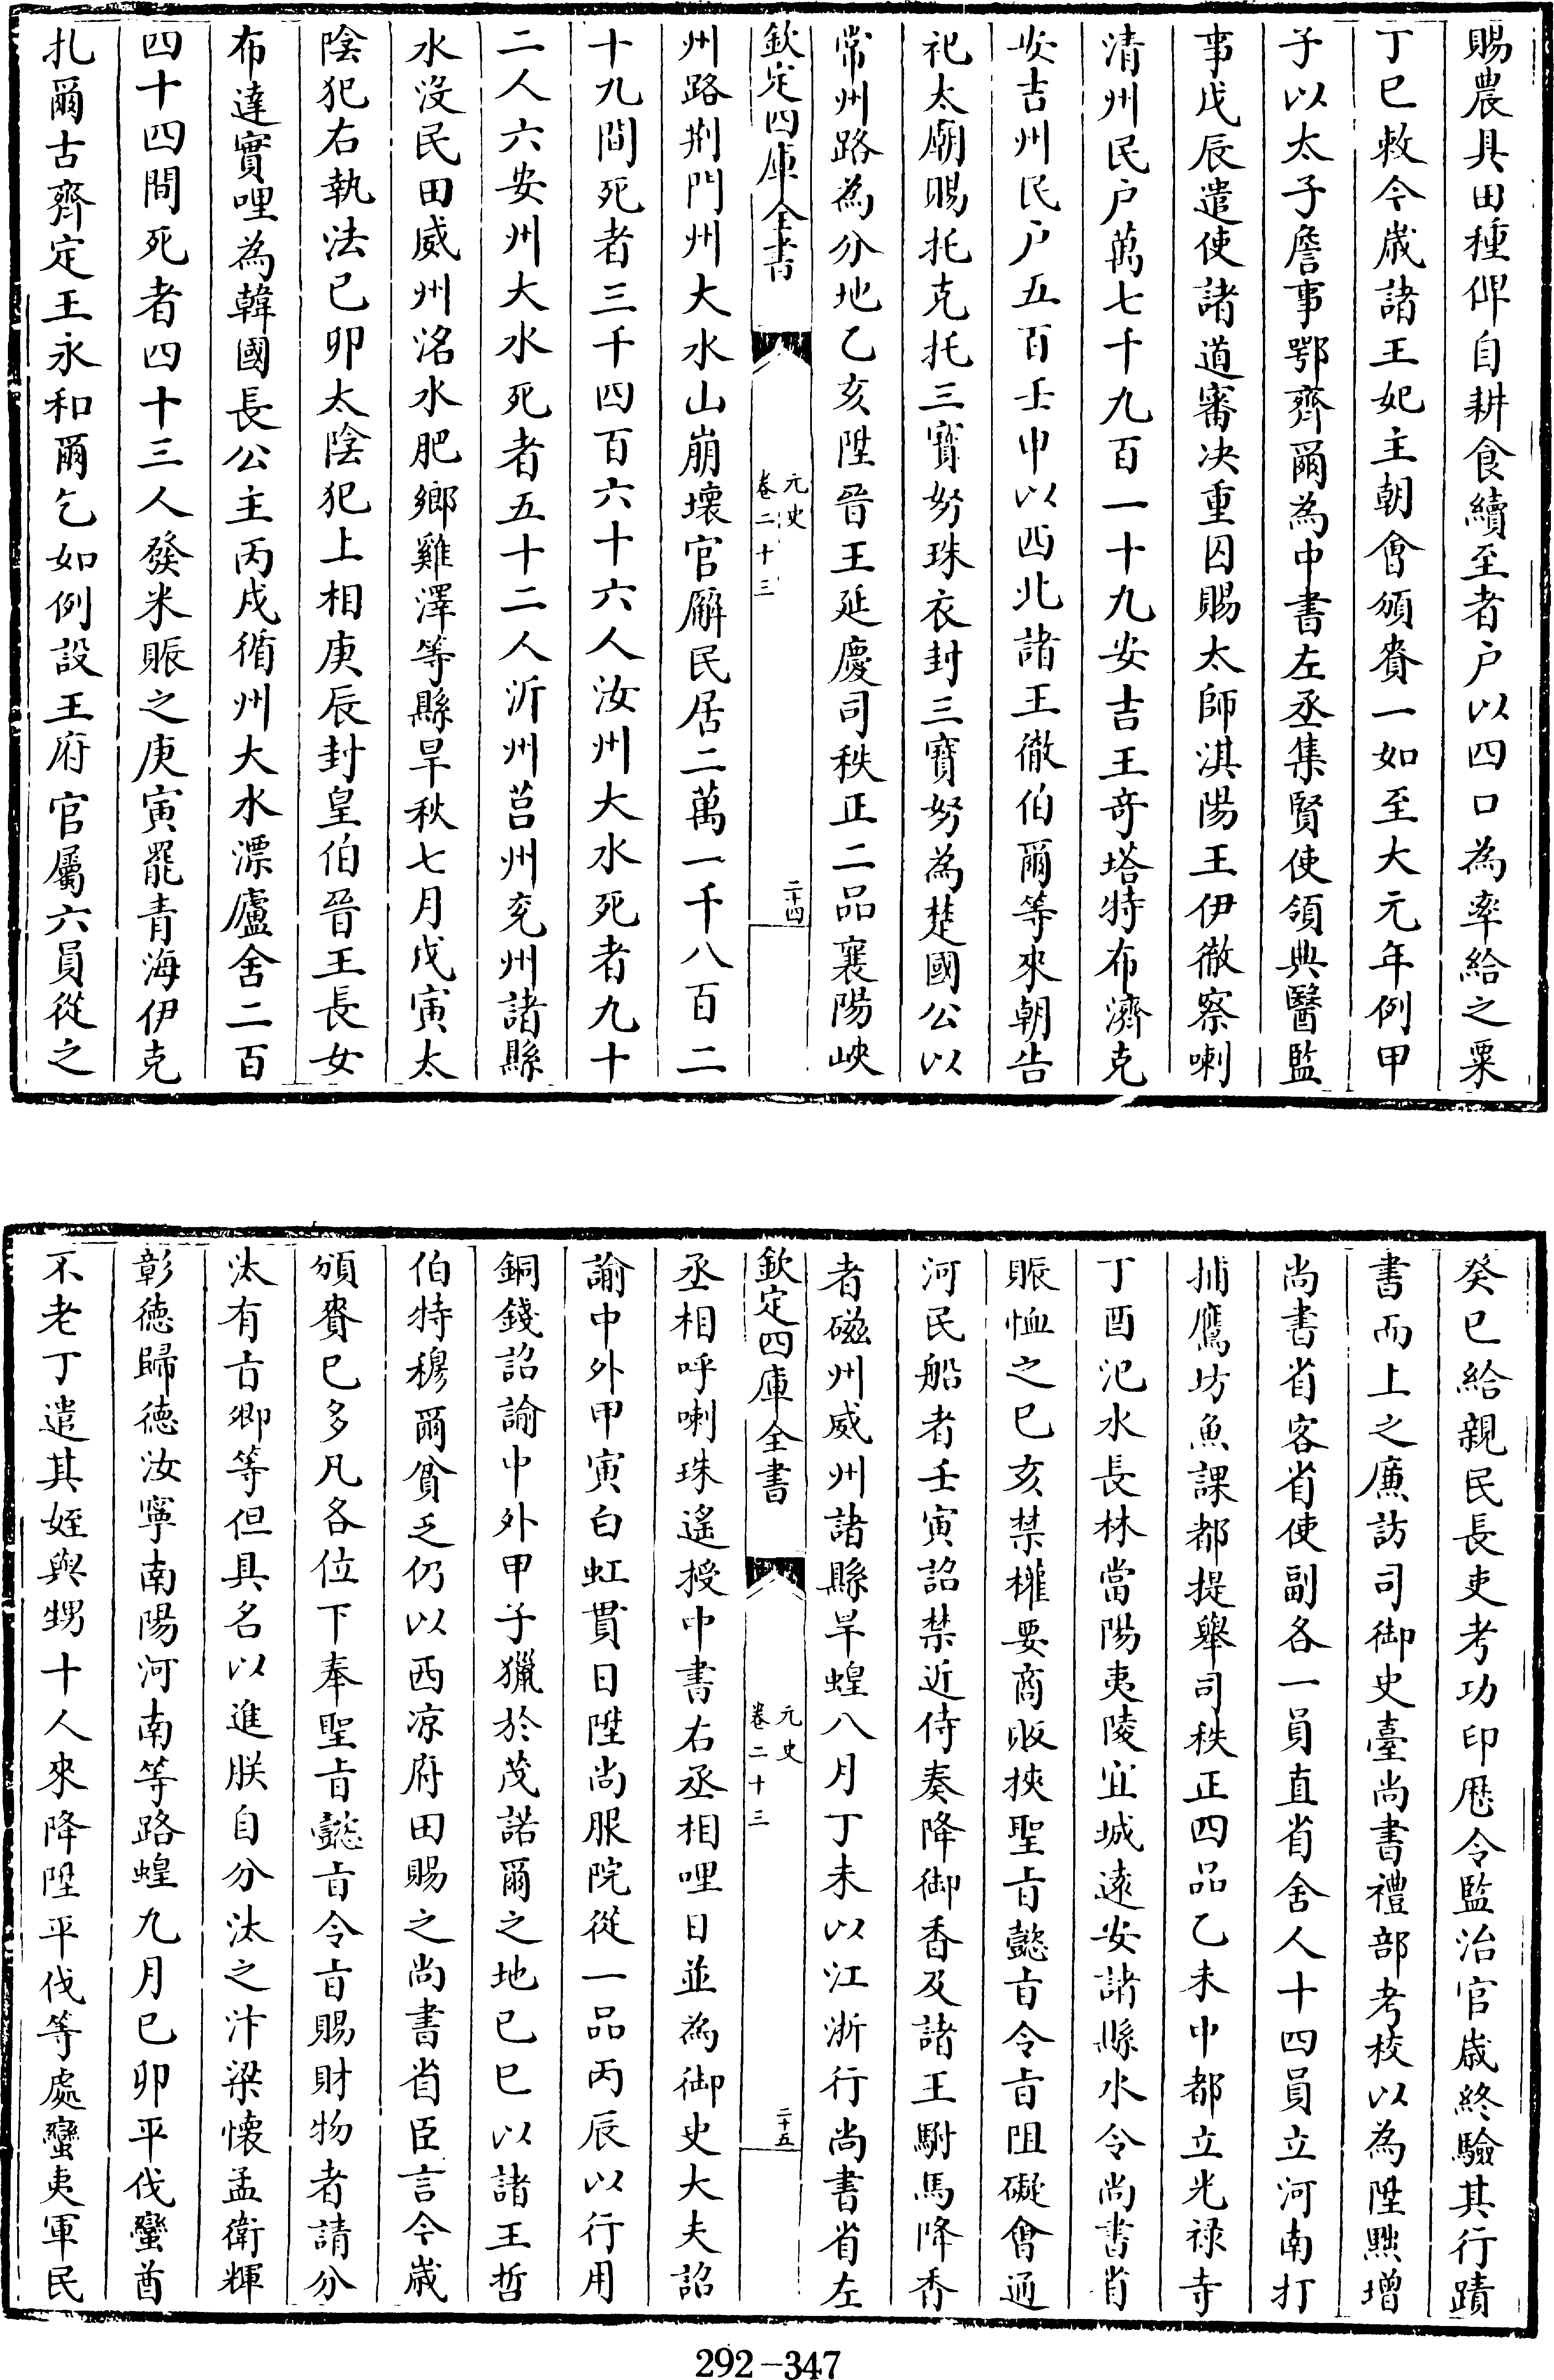 賜農具田種俾自耕食續至者戶以四口為率給之粟
丁巳敕今歲諸王妃主朝會頒賚一如至大元年例甲
子以太子詹事鄂齊爾為中書左丞集賢使領典醫監
事戊辰遣使諸道審決重囚賜太師淇陽王伊徹察喇
清州民戶萬七千九百一十九安吉王奇塔特布濟克
安吉州民戶五百壬申以西北諸王徹伯爾等來朝告
祀太廟賜托克托三寶努珠衣封三寶努為楚國公以
常州路為分地乙亥陞晉王延慶司秩正二品襄陽峽
欽定四庫全書
元史
卷二十三
二十四
州路荆門州大水山崩壞官廨民居二萬一千八百二
十九間死者三千四百六十六人汝州大水死者九十
二人六安州大水死者五十二人沂州莒州兖州諸縣
水沒民田威州洺水肥鄉雞澤等縣旱秋七月戊寅太
陰犯右執法已卯太陰犯上相庚辰封皇伯晉王長女
布達實哩為韓國長公主丙戌循州大水漂廬舍二百
四十四間死者四十三人發米賑之庚寅罷青海伊克
扎爾古齊定王永和爾乞如例設王府官屬六員從之
癸巳給親民長吏考功印厯令監治官歲終驗其行蹟
書而上之廉訪司御史臺尚書禮部考校以為陞黜增
尚書省客省使副各一員直省舍人十四員立河南打
捕鷹坊魚課都提舉司秩正四品乙未中都立光禄寺
丁酉汜水長林當陽夷陵宜城遠安諸縣水令尚書省
賑恤之已亥禁權要商販挾聖旨懿旨令旨阻礙會通
河民船者壬寅詔禁近侍奏降御香及諸王駙馬降香
者磁州威州諸縣旱蝗八月丁未以江浙行尚書省左
欽定四庫全書
元史
卷二十三
二十五
丞相呼喇珠遥授中書右丞相哩日並為御史大夫詔
諭中外甲寅白虹貫日陞尚服院從一品丙辰以行用
銅錢詔諭中外甲子獵於茂諾爾之地已巳以諸王哲
伯特穆爾貧乏仍以西凉府田賜之尚書省臣言今歲
頒賚已多凡各位下奉聖旨懿旨令旨賜財物者請分
汰有旨卿等但具名以進朕自分汰之汴梁懷孟衛輝
彰德歸德汝寧南陽河南等路蝗九月已卯平伐蠻酋
不老丁遣其姪與甥十人來降陞平伐等處蠻夷軍民
292-347